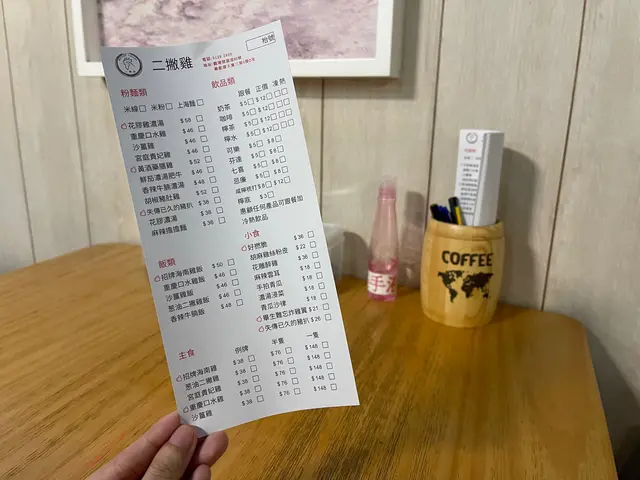 二撇雞
枱號
粉麵類
米線 米粉 上海麵
花膠雞濃湯 $58
重慶口水雞 $46
沙薑雞 $46
宮庭貴妃雞 $46
黃酒藥膳雞 $52
鮮茄濃湯肥牛 $46
香辣牛腩濃湯 $48
胡椒豬肚雞 $52
失傳已久的豬扒 $38
花膠濃湯 $38
麻辣擔擔麵 $38
飲品類
跟餐 正價 凍 熱
奶茶 $5 $12
咖啡 $5 $12
檸茶 $5 $12
檸水 $5 $12
可樂 $5 $8
芬達 $5 $8
七喜 $5 $8
忌廉 $5 $8
咸檸梳打 $8 $12
惠顧任何產品可跟餐加
冷熱飲品
小食
好撚脆 $36
胡麻雞絲粉皮 $22
花雕醉雞 $36
麻辣雲耳 $18
手拍青瓜 $18
濃湯浸菜 $18
青瓜沙律 $18
畢生難忘炸雞翼 $21
失傳已久的豬扒 $26
飯類
招牌海南雞飯 $50
重慶口水雞飯 $46
沙薑雞飯 $46
葱油二撇雞飯 $46
香辣牛腩飯 $48
主食 例牌 半隻 一隻
招牌海南雞 $38 $76 $148
葱油二撇雞 $38 $76 $148
宮庭貴妃雞 $38 $76 $148
重慶口水雞 $38 $76 $148
沙薑雞 $38 $76 $148
COFFEE
手